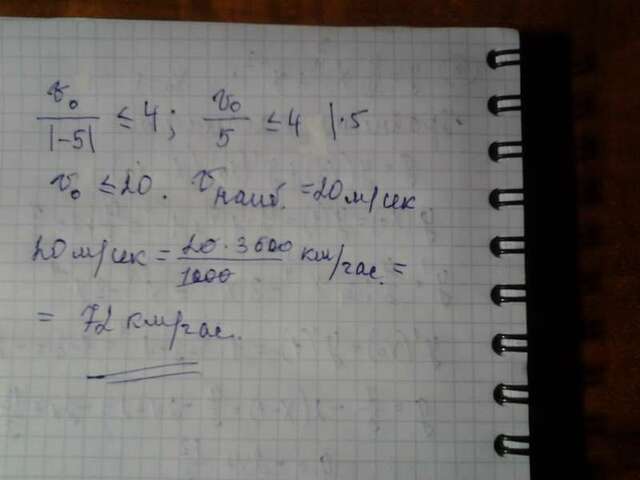 v₀/|-5| ≤ 4; v₀/5 ≤ 4 |·5
v₀ ≤ 20. v наиб. = 20 м/сек
20 м/сек = 20·3600/1000 км/час. =
= 72 км/час.